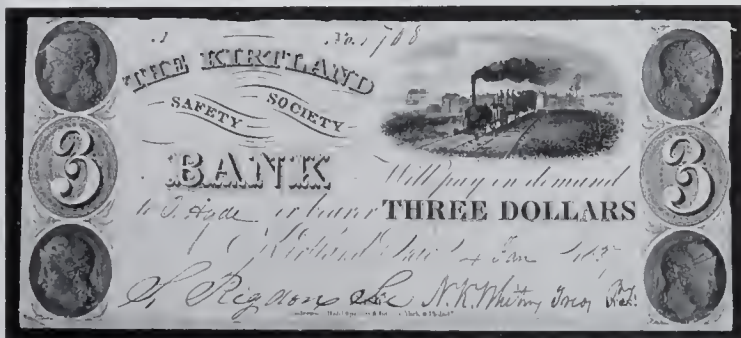 No. 1708
THE KIRTLAND
SAFETY SOCIETY
BANK
3
3
Will pay on demand
to O. Hyde or bearer THREE DOLLARS
Kirtland 4 Jan 1837
S. Rigdon Sec N. K. Whitney